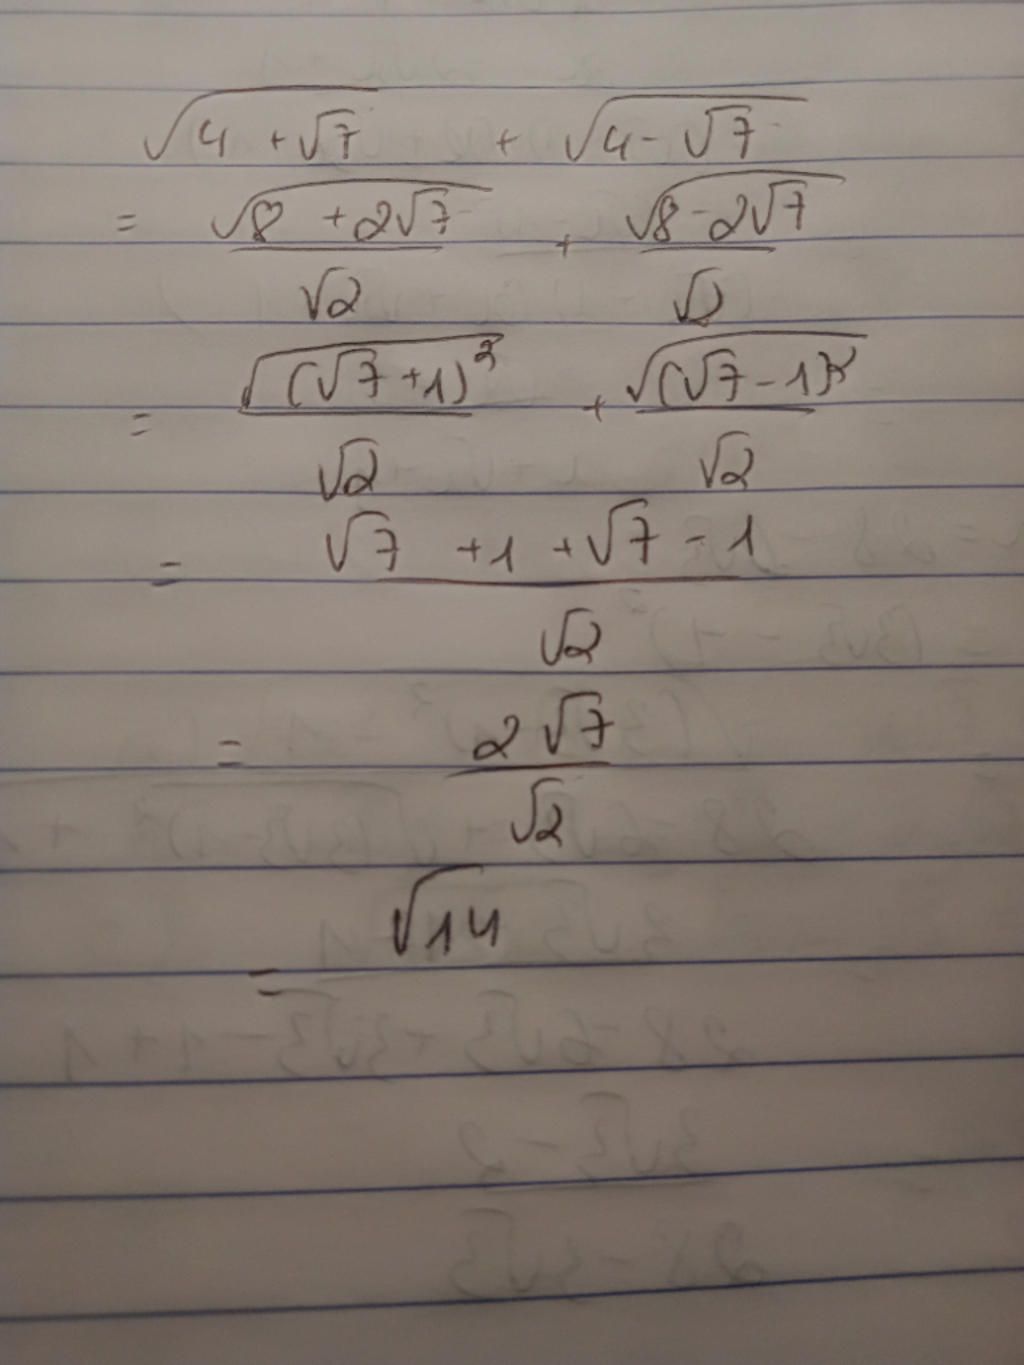 √(4 + √7) + √(4 - √7)
= √(8 + 2√7) / √2 + √(8 - 2√7) / √2
= √((√7 + 1)²) / √2 + √((√7 - 1)²) / √2
= (√7 + 1 + √7 - 1) / √2
= 2√7 / √2
= √14